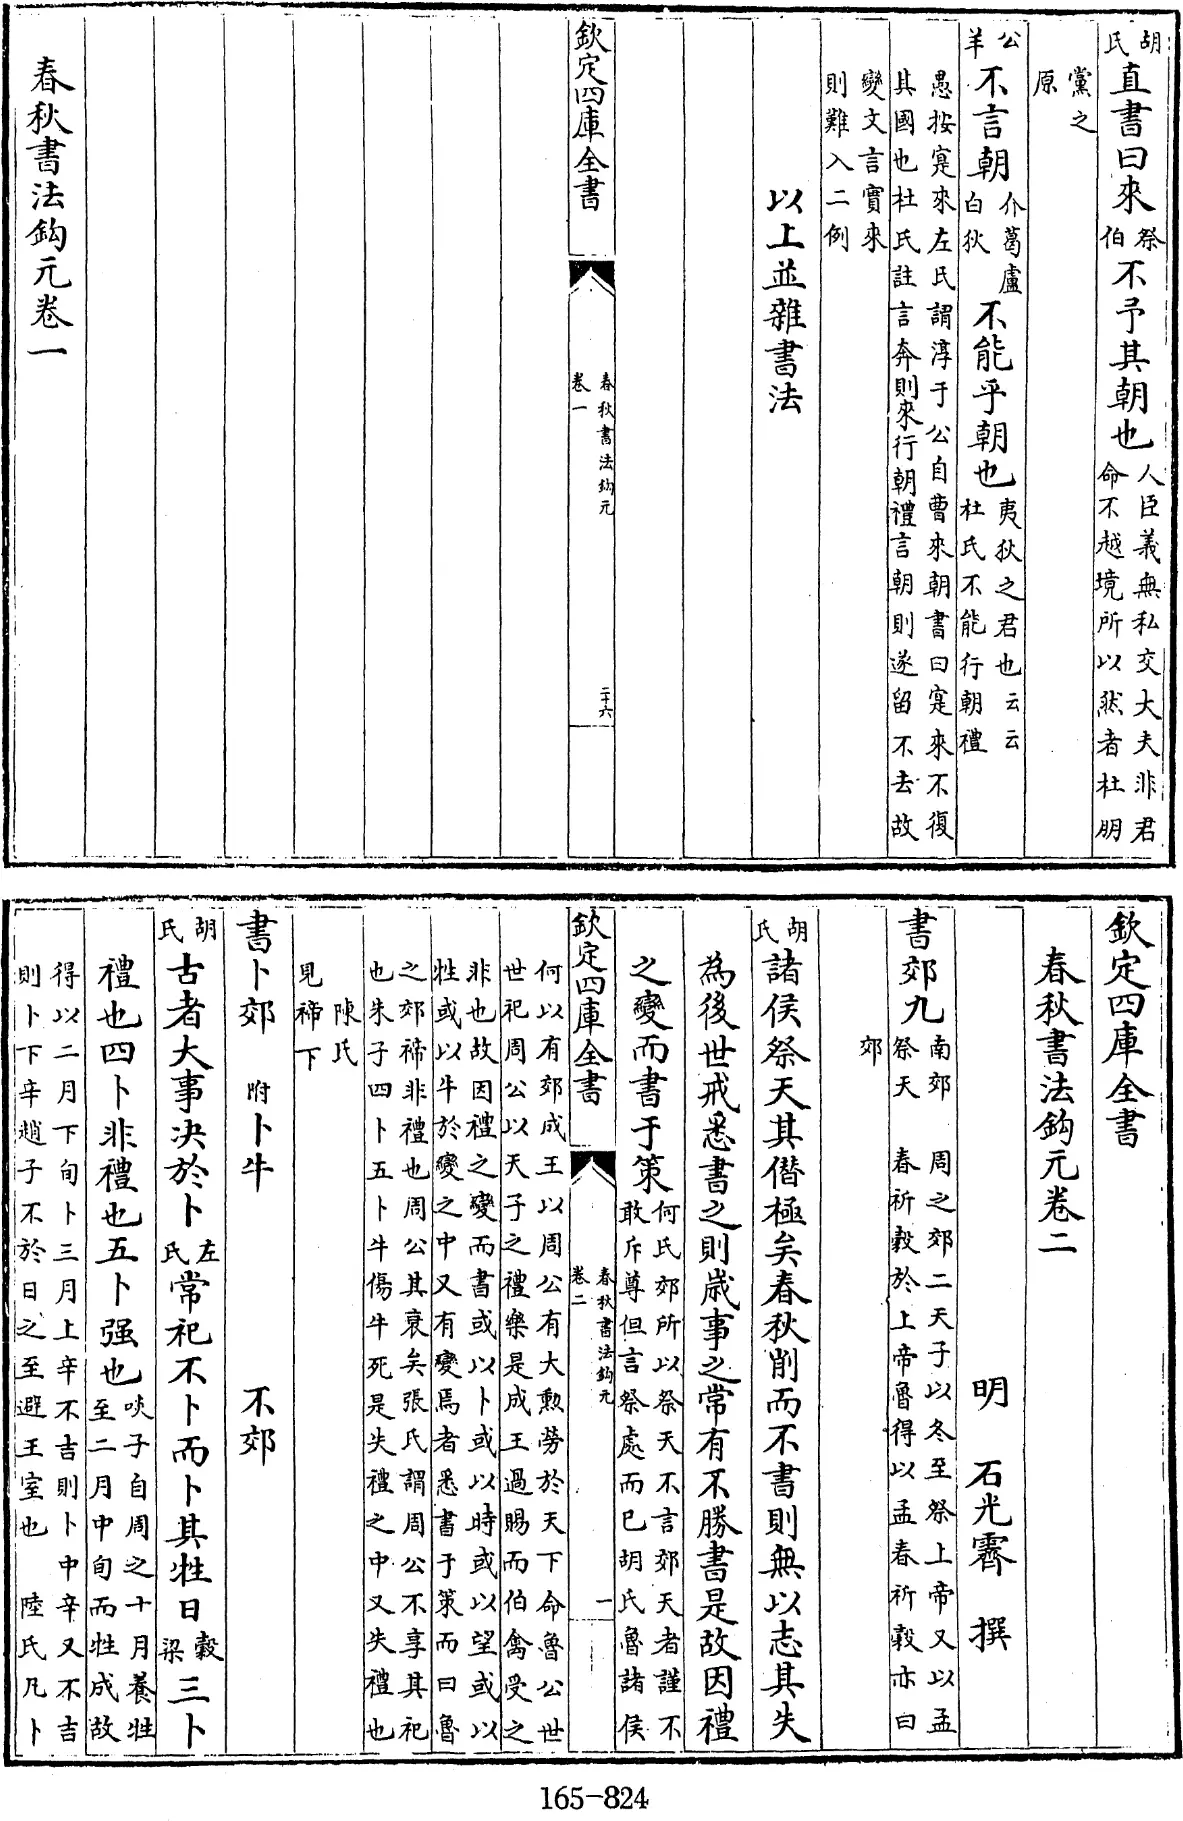 胡氏直書曰來祭伯不予其朝也人臣義無私交大夫非君命不越境所以然者杜朋
黨之原
公羊不言朝介葛盧白狄不能乎朝也夷狄之君也云云杜氏不能行朝禮
愚按寔來左氏謂淳于公自曹來朝書曰寔來不復
其國也杜氏註言奔則來行朝禮言朝則遂留不去故
變文言實來
則難入二例
以上並雜書法
欽定四庫全書
春秋書法鈎元
卷一
二十六
春秋書法鈎元卷一
欽定四庫全書
春秋書法鈎元卷二
明 石光霽 撰
書郊九南郊祭天 周之郊二天子以冬至祭上帝又以孟春祈穀於上帝魯得以孟春祈穀亦曰
郊
胡氏諸侯祭天其僭極矣春秋削而不書則無以志其失
為後世戒悉書之則歲事之常有不勝書是故因禮
之變而書于策何氏郊所以祭天不言郊天者謹不敢斥尊但言祭處而已胡氏魯諸侯
欽定四庫全書
春秋書法鈎元
卷二
一
何以有郊成王以周公有大勲勞於天下命魯公世
世祀周公以天子之禮樂是成王過賜而伯禽受之
非也故因禮之變而書或以卜或以時或以望或以
牲或以牛於變之中又有變焉者悉書于策而曰魯
之郊禘非禮也周公其衰矣張氏謂周公不享其祀
也朱子四卜五卜牛傷牛死是失禮之中又失禮也
陳氏
見禘下
書卜郊 附卜牛 不郊
胡氏古者大事决於卜左氏常祀不卜而卜其牲日穀梁三卜
禮也四卜非禮也五卜强也啖子自周之十月養牲至二月中旬而牲成故
得以二月下旬卜三月上辛不吉則卜中辛又不吉
則卜下辛趙子不於日之至避王室也 陸氏凡卜
165-824